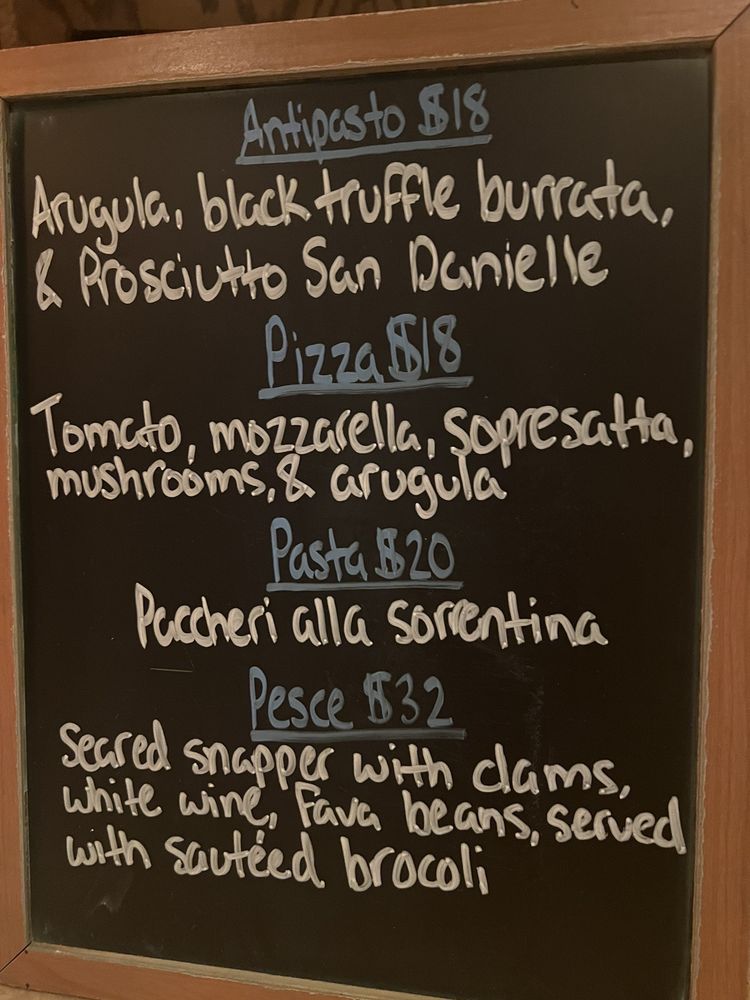 Antipasto $18
Arugula, black truffle burrata,
& Prosciutto San Danielle
Pizza $18
Tomato, mozzarella, sopresatta,
mushrooms, & arugula
Pasta $20
Paccheri alla sorrentina
Pesce $32
Seared snapper with clams,
white wine, Fava beans, served
with sautéed brocoli